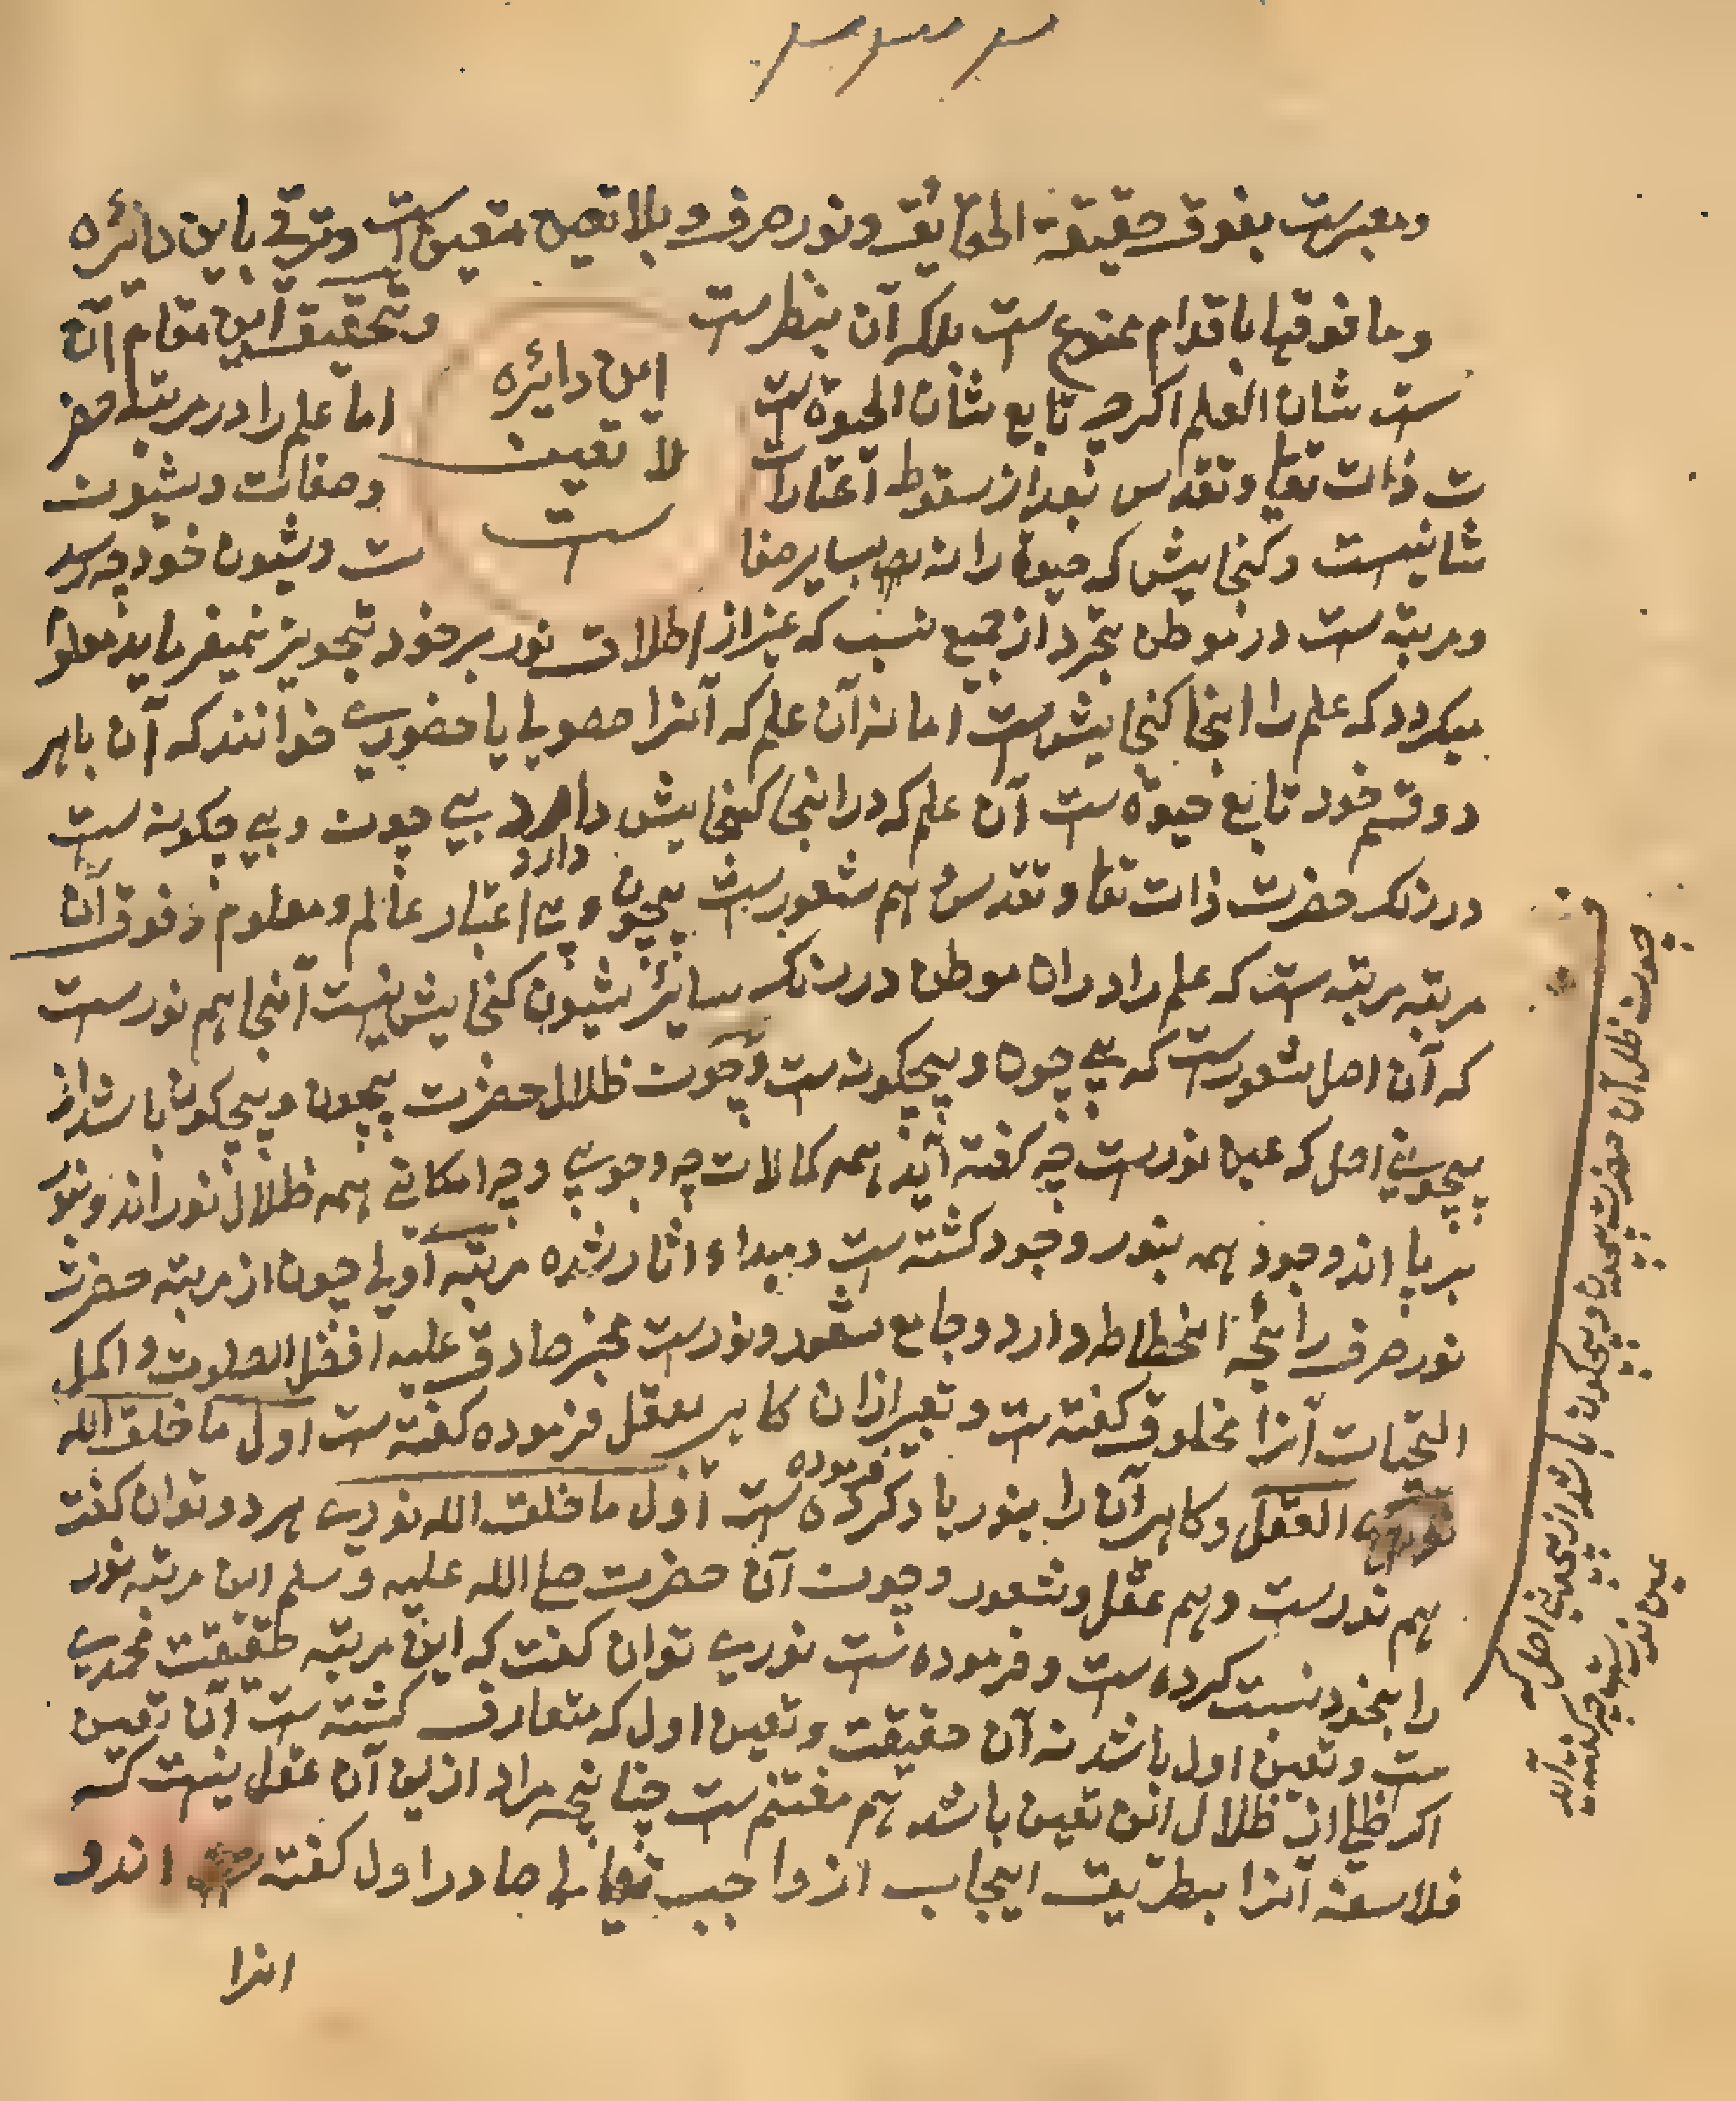 ومعبرست بفوق حقیقة الحقایٔق ونور صرف و بلا تعین متعین است وترقی باین دایٔره
وما فوقها باقدام ممنوع ست بلکه آن بنظرست وتحقیق این مقام آن
ست شان العلم اکرچه تابع شان الحیوة ست اما علم را در مرتبه حضر
ت ذات تعا وتقدس بعد از سقوط اعتبارات وصفات وشیون
شانیست وکنجایش که حیوة را نه بسایر صفا ت وشیون خود چه رسد
این دایٔره
لا تعین
ست
ومرتبه ست در موطن تجرد از جمیع نسب که غیر از اطلاق نور بر خود تجویز نمیفرماید معلوم
میکردد که علم را اینجا کنجایش ست اما نه آن علم که آنرا حصولی یا حضوری خوانند که آن باهر
دو قسم خود تابع حیوة ست آن علم که در اینجا کنجایش دارد بی چون وبی چکونه ست
دارد
در رنک حضرت ذات تعا وتقدس هم شعورست بیچون و بی اعتبار عالم ومعلوم وفوق آن
مرتبه مرتبه ست که علم را دران موطن در رنک سایٔر شیون کنجایش نیست آنجا هم نورست
که آن اصل شعورست که بی چون وبیچکونه ست وچون ظلال حضرت بیچون وبیچکون باشد از
بیچونی اصل که عین نورست چه کفته اید همه کمالات چه وجوبی وچه امکانی همه ظلال نور اند وبنور
برپا اند وجود همه بنور وجود کشته ست ومبداء اثار شده مرتبه اولی چون از مرتبه حضرت
نور صرف رایٔحه انحطاط دارد وجامع شعور ونورست مخبر صادق علیه افضل الصلوت واکمل
التحیات آنرا مخلوق کفته ست وتعبیر ازان کاهی بعقل فرموده کفته ست اول ما خلق الله
العقل وکاهی آن را بنور یاد کرده ست اول ما خلق الله نوری هر دو توان کفت
فرموده
هم نورست وهم عقل وشعور وچون آن حضرت صلی الله علیه وسلم این مرتبه نور
را بخود نسبت کرده ست وفرموده ست نوری توان کفت که این مرتبه حقیقت محمدی
ست وتعین اول باشد نه آن حقیقت وتعین اول که متعارف کشته ست آن تعین
اکر ظلی از ظلال این تعین باشد هم مغتنم ست چنانچه مراد ازین آن عقل نیست که
فلاسفه آنرا بطریق ایجاب از واجب تعالی صادر اول کفته اند و
انرا
چون ظل آن حضرت بیچون وبیچکون باشد از بیچونی اصل که
عین نورست چه کفته آید